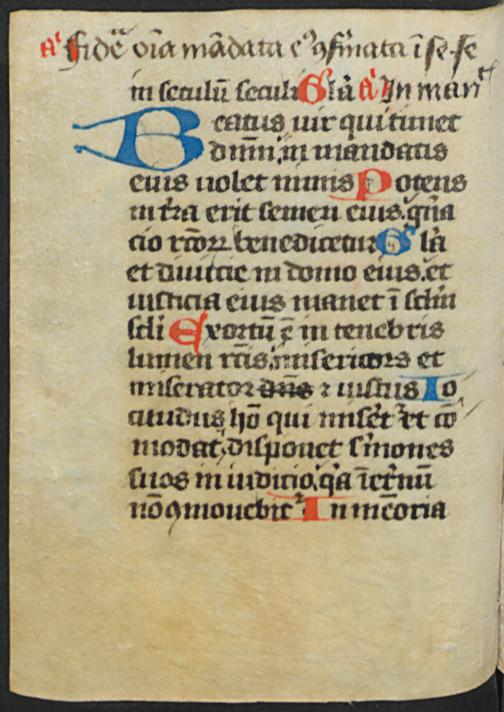 a͛ fidēa oīa mādata eꝰ ꝯf͛mata ī se. se
in seculū seculi Glā a͛ In man
Beatus uir qui timet
dn̄m: in mandatis
euis uolet nimis Potens
in tr̄a erit semen eiusˀ gn̄a
cio rc̄oꝝ benedicetur Glā
et diuitie in domo eiusˀ et
iusticia eius manet ī sclm̄
scl̄i Exortū ē in tenebris
lumen rc̄isˀ misericors et
miserator dn̄s ⁊ iustus Io
cundus hō qui miset͛ et cō
modatˀ disponet s͛mones
suos in iudicioˀ qa īet͛nū
nō ꝯmouebit͛ In mēoria